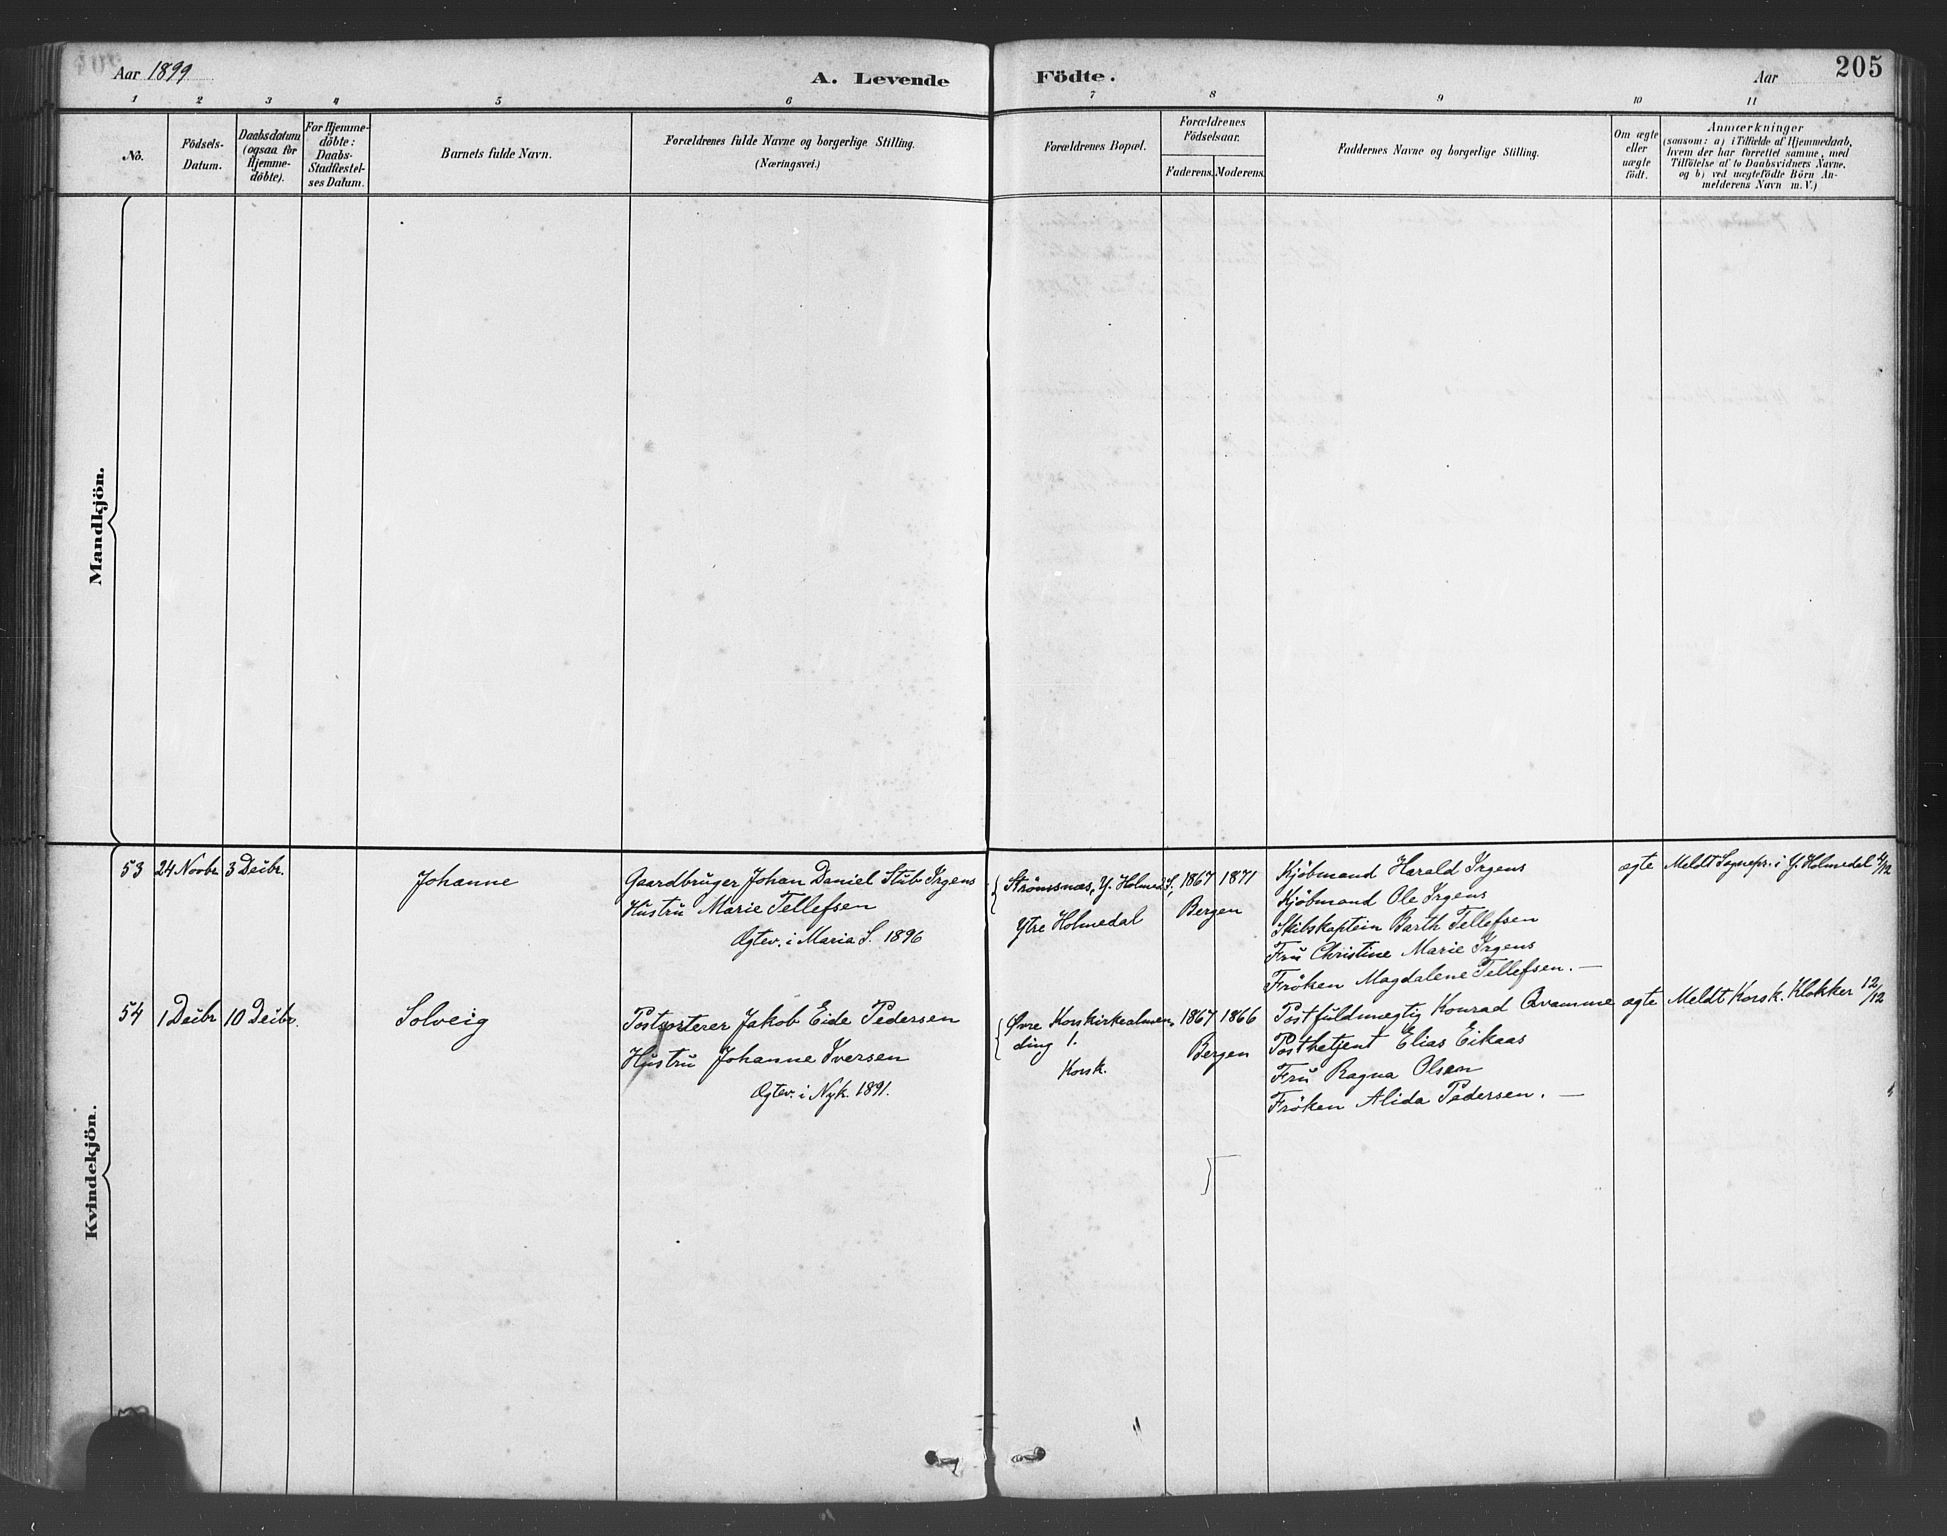 Aar 1899
A. Levende Födte.
Aar
205
1 2 3 4 5 6 7 8 9 10 11
No.
Födsels-
Datum.
Daabsdatum
(ogsaa for
Hjemme-
döbte).
For Hjemme-
döbte:
Daabs-
Stadfæstel-
ses Datum.
Barnets fulde Navn.
Forældrenes fulde Navne og borgerlige Stilling.
(Næringsvei.)
Forældrenes Bopæl.
Forældrenes
Födselsaar.
Faderens. Moderens.
Faddernes Navne og borgerlige Stilling.
Om ægte
eller
uægte
födt.
Anmærkninger
(saasom: a) i Tilfælde af Hjemmedaab,
hvem der har forrettet samme, med
Tilföielse af to Daabsvidners Navne.
og b) ved uægtefödte Börn An-
melderens Navn m. V.)
Mandkjön.
Kvindekjön.
53 24 Novbr 3 Decbr.
Johanne
Gaardbruger Johan Daniel Stub Irgens
Hustru Marie Tellefsen
Ægtev. i Maria S. 1896
Strömsnæs, Y. Holmed. S.
Ytre Holmedal
1867 1871
Bergen
Kjöbmand Harald Irgens
Kjöbmand Ole Irgens
Skibskaptein Barth Tellefsen
Fru Christine Marie Irgens
Fröken Magdalene Tellefsen. —
ægte
Meldt Sognepr. i Y. Holmedal 4/12
54 1 Decbr 10 Decbr.
Solveig
Postsorterer Jakob Eide Pedersen
Hustru Johanne Iversen
Ægtev. i Nyk. 1891.
Øvre Korskirkealmen-
ding 1.
Korsk.
1867 1866
Bergen
Postfuldmægtig Konrad Qvamme
Postbetjent Elias Eikaas
Fru Ragna Olsen
Fröken Alida Pedersen. —
ægte
Meldt Korsk. Klokker 12/12